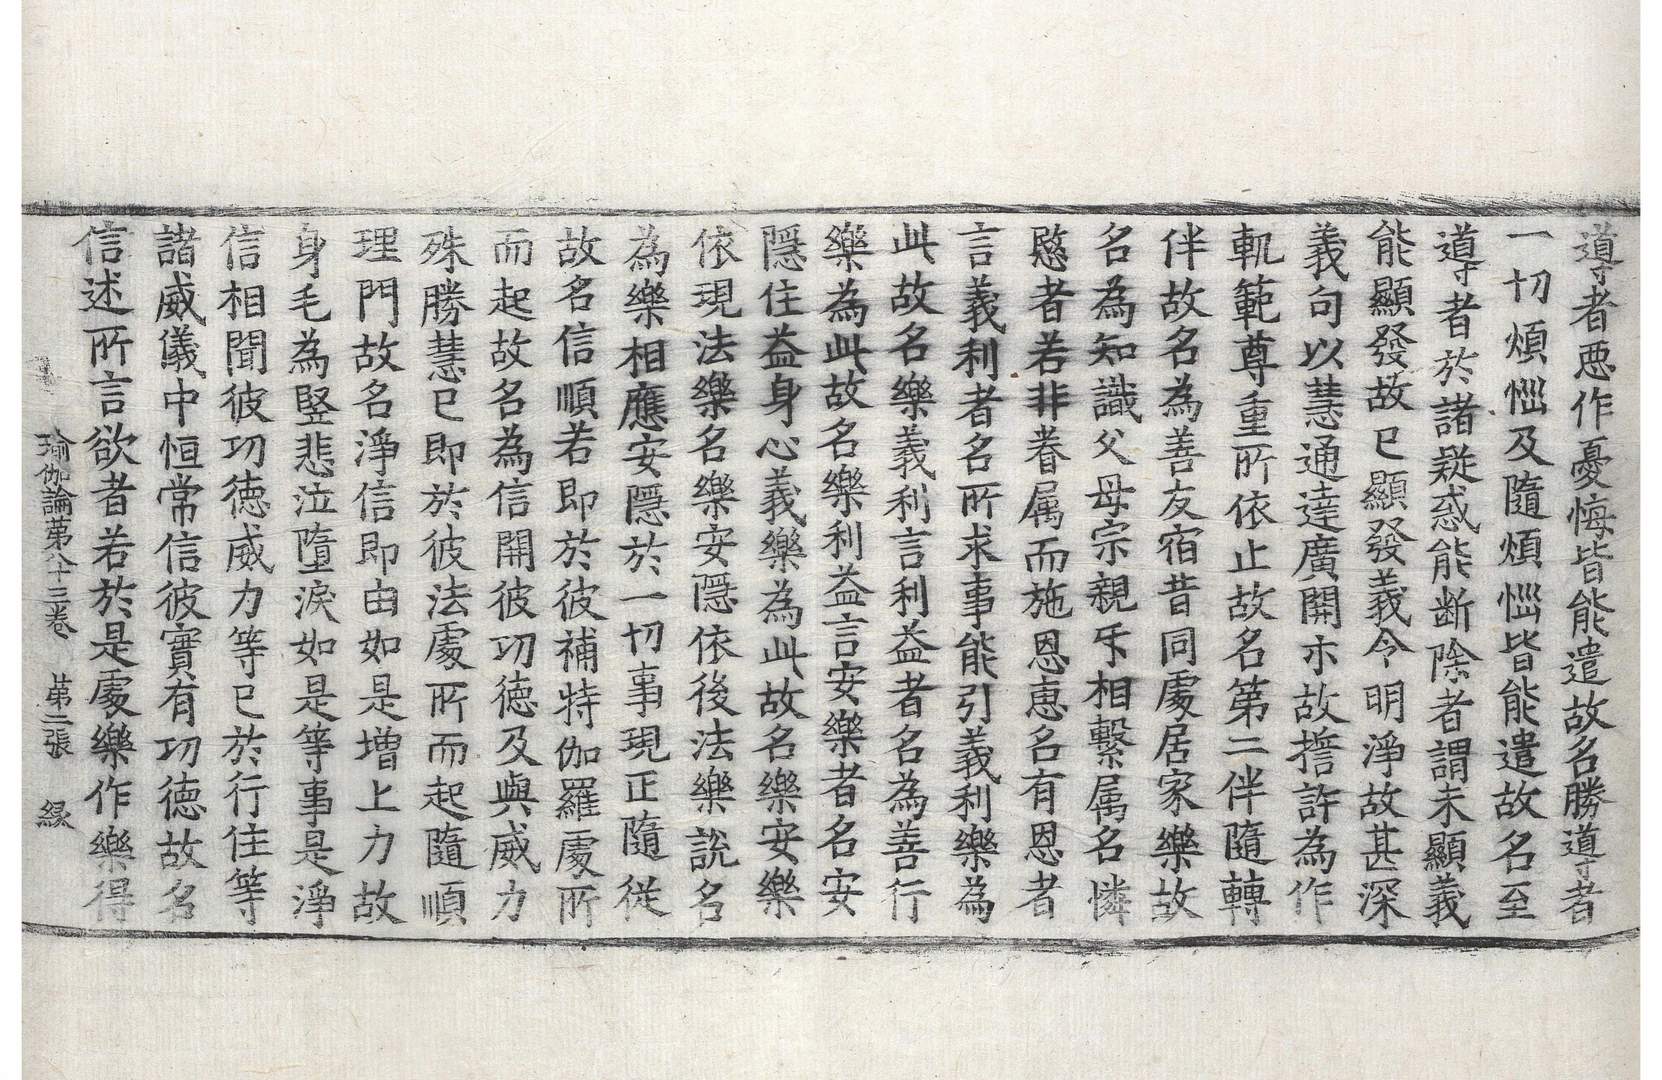 導者悪作憂悔皆能遣故名勝導者
一切煩惱及隨煩惱皆能遣故名至
導者於諸疑惑能斷除者謂未顯義
能顯發故已顯發義令明淨故甚深
義句以慧通達廣開示故捨許為作
軌範尊重所依止故名第二伴隨轉
伴故名為善友宿昔同處居家樂故
名為知識父母宗親互相繫属名憐
愍者若非眷属而施恩恵名有恩者
言義利者名所求事能引義利樂為
此故名樂義利言利益者名為善行
樂為此故名樂利益言安樂者名安
隱住益身心義樂為此故名樂安樂
依現法樂名樂安隱依後法樂說名
為樂相應安隱於一切事現正隨從
故名信順若即於彼補特伽羅處所
而起故名為信開彼功徳及與威力
殊勝慧已即於彼法處所而起隨順
理門故名淨信即由如是增上力故
身毛為竪悲泣墮淚如是等事是淨
信相聞彼功徳威力等已於行住等
諸威儀中恒常信彼實有功徳故名
信述所言欲者若於是處樂作樂得
瑜伽論第八十三卷　第二張　緣